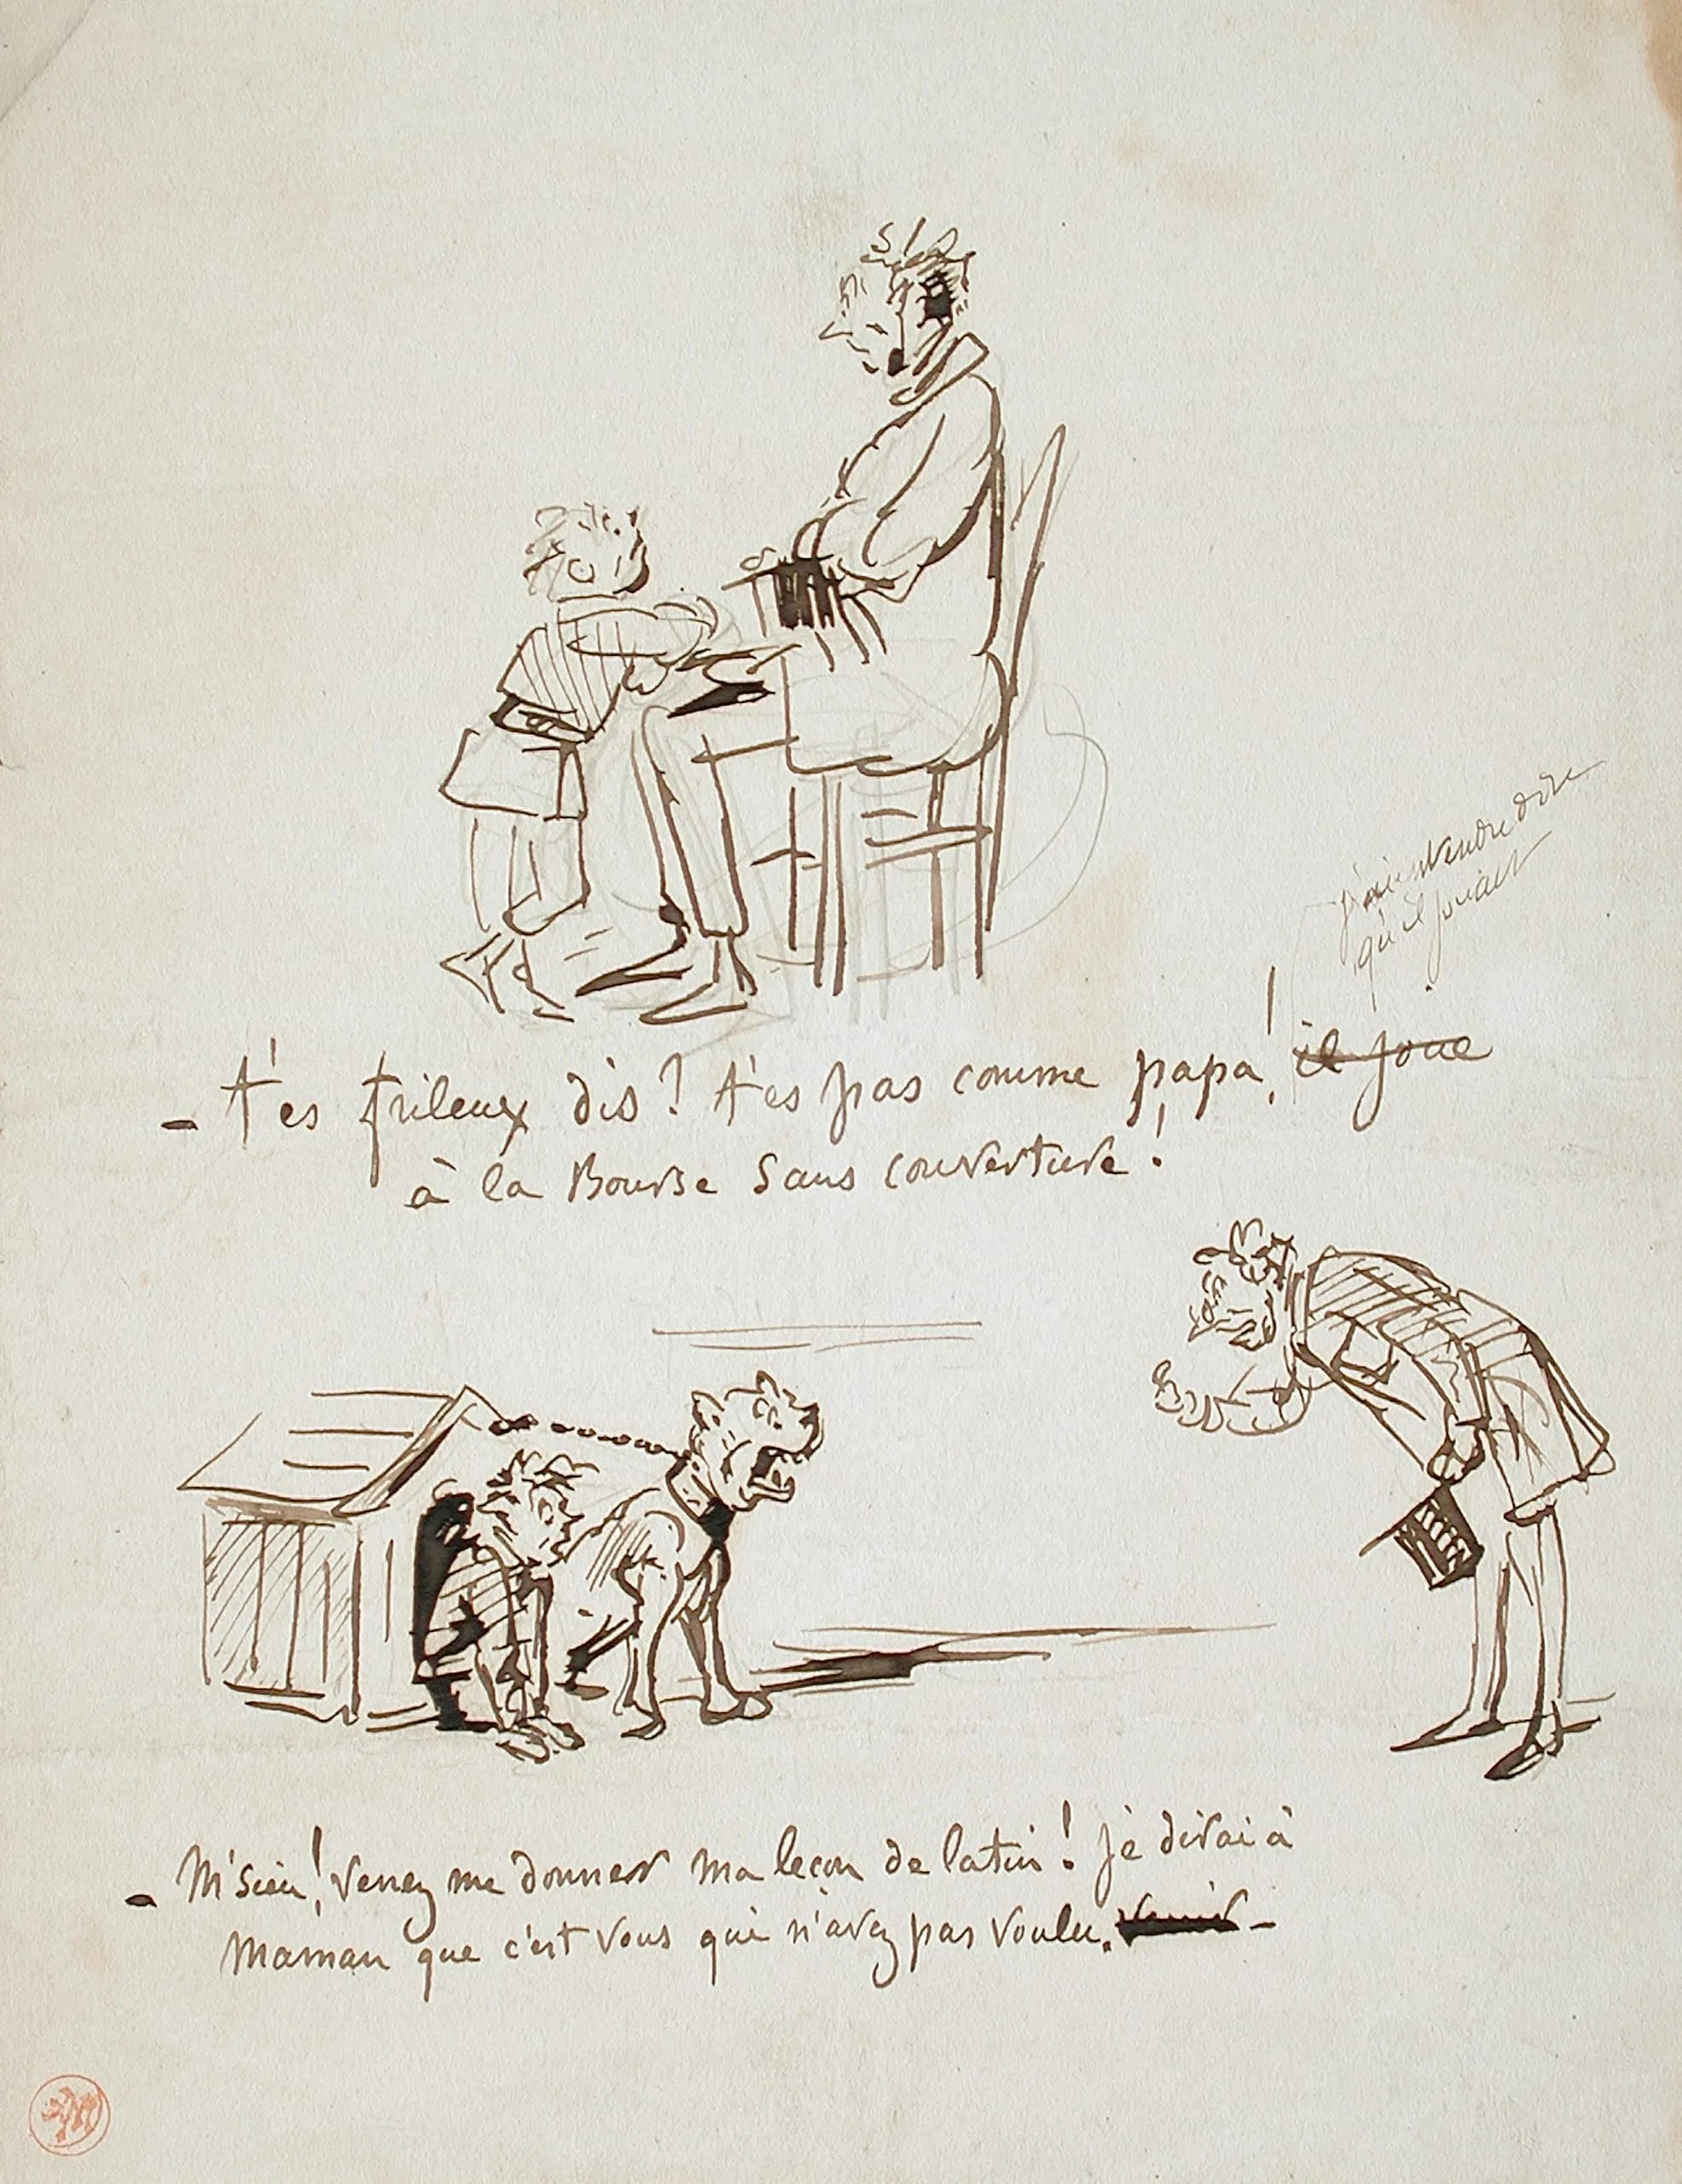 j'ai entendu dire
qu'il jouait
- T'es frileux dis ? T'es pas comme papa ! il joue
à la Bourse sans couverture !
- M'sieu ! Venez me donner ma leçon de latin ! Je dirai à
Maman que c'est vous qui n'avez pas voulu. venir -